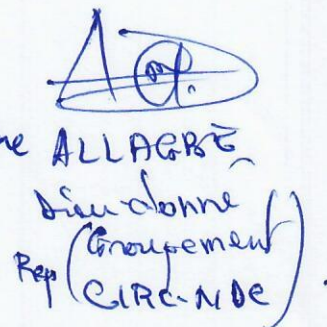 ALLAGBE
Dieu-donné
Rep (Groupement
CIRC-NDC)